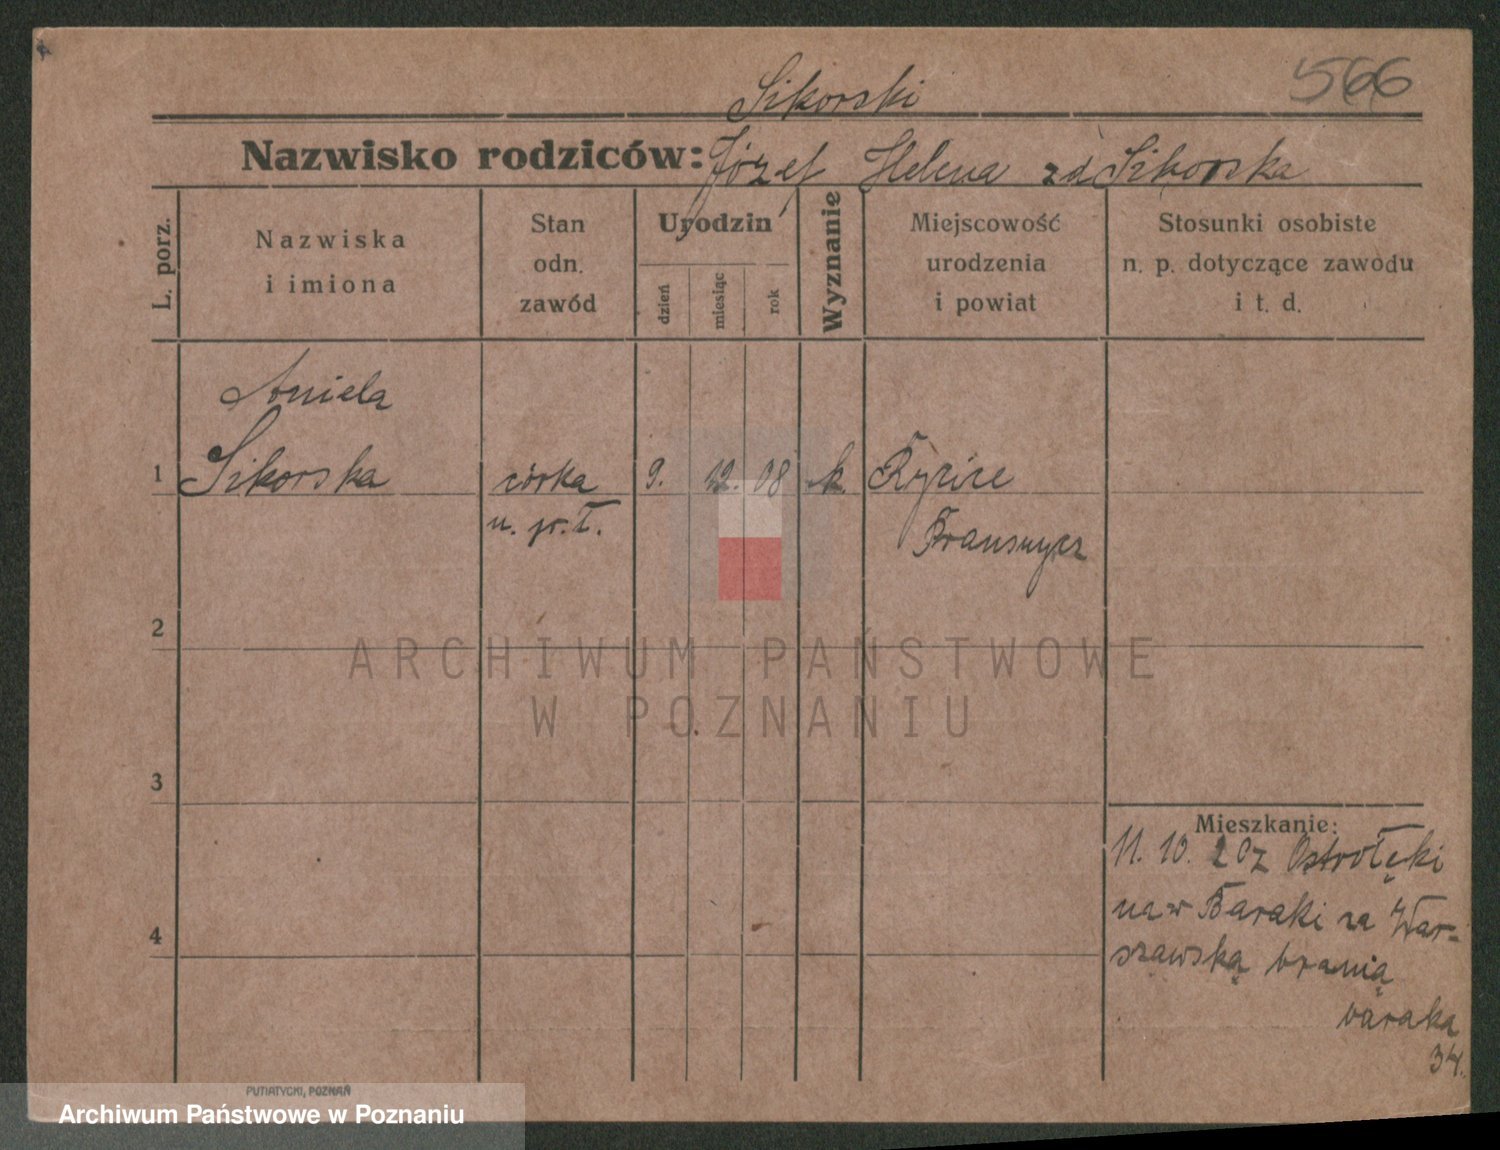 566
Sikorski
Nazwisko rodziców: Józef Helena zd Sikorska
L. porz.
Nazwiska
i imiona
Stan
odn.
zawód
Urodzin
dzień
miesiąc
rok
Wyznanie
Miejscowość
urodzenia
i powiat
Stosunki osobiste
n. p. dotyczące zawodu
i t. d.
Aniela
1 Sikorska córka 9. 12. 08 k.
n. p. ł.
2
3
4
Mieszkanie:
11. 10. 20 z Ostrołęki
na w Baraki za War-
szawską bramią
baraka
34.
PUTIATYCKI, POZNAŃ
ARCHIWUM PAŃSTWOWE
W POZNANIU
Archiwum Państwowe w Poznaniu